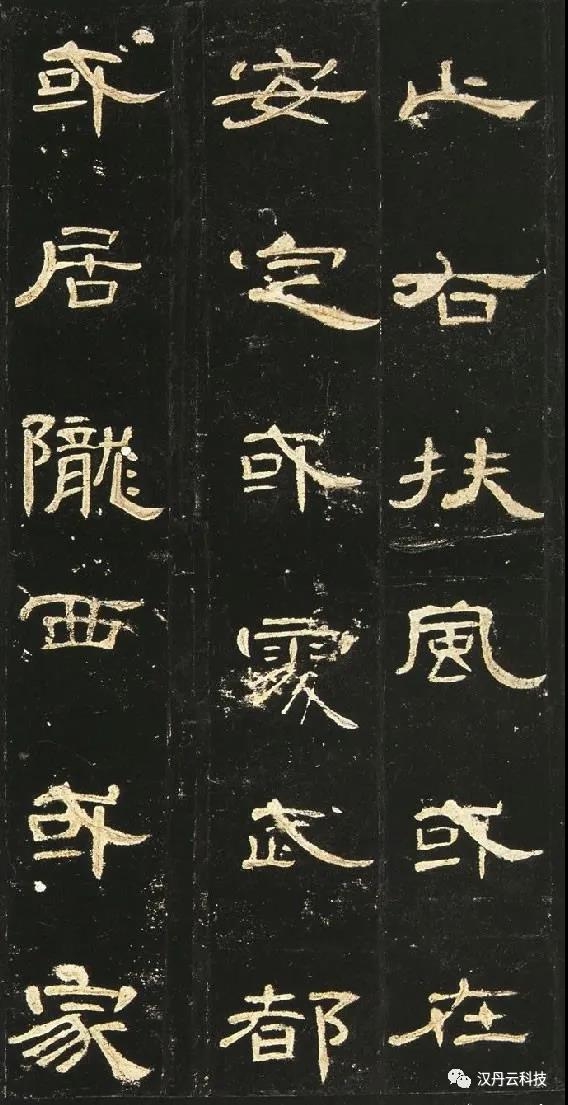 止右扶風或在
安定或處武都
或居隴西或家
汉丹云科技